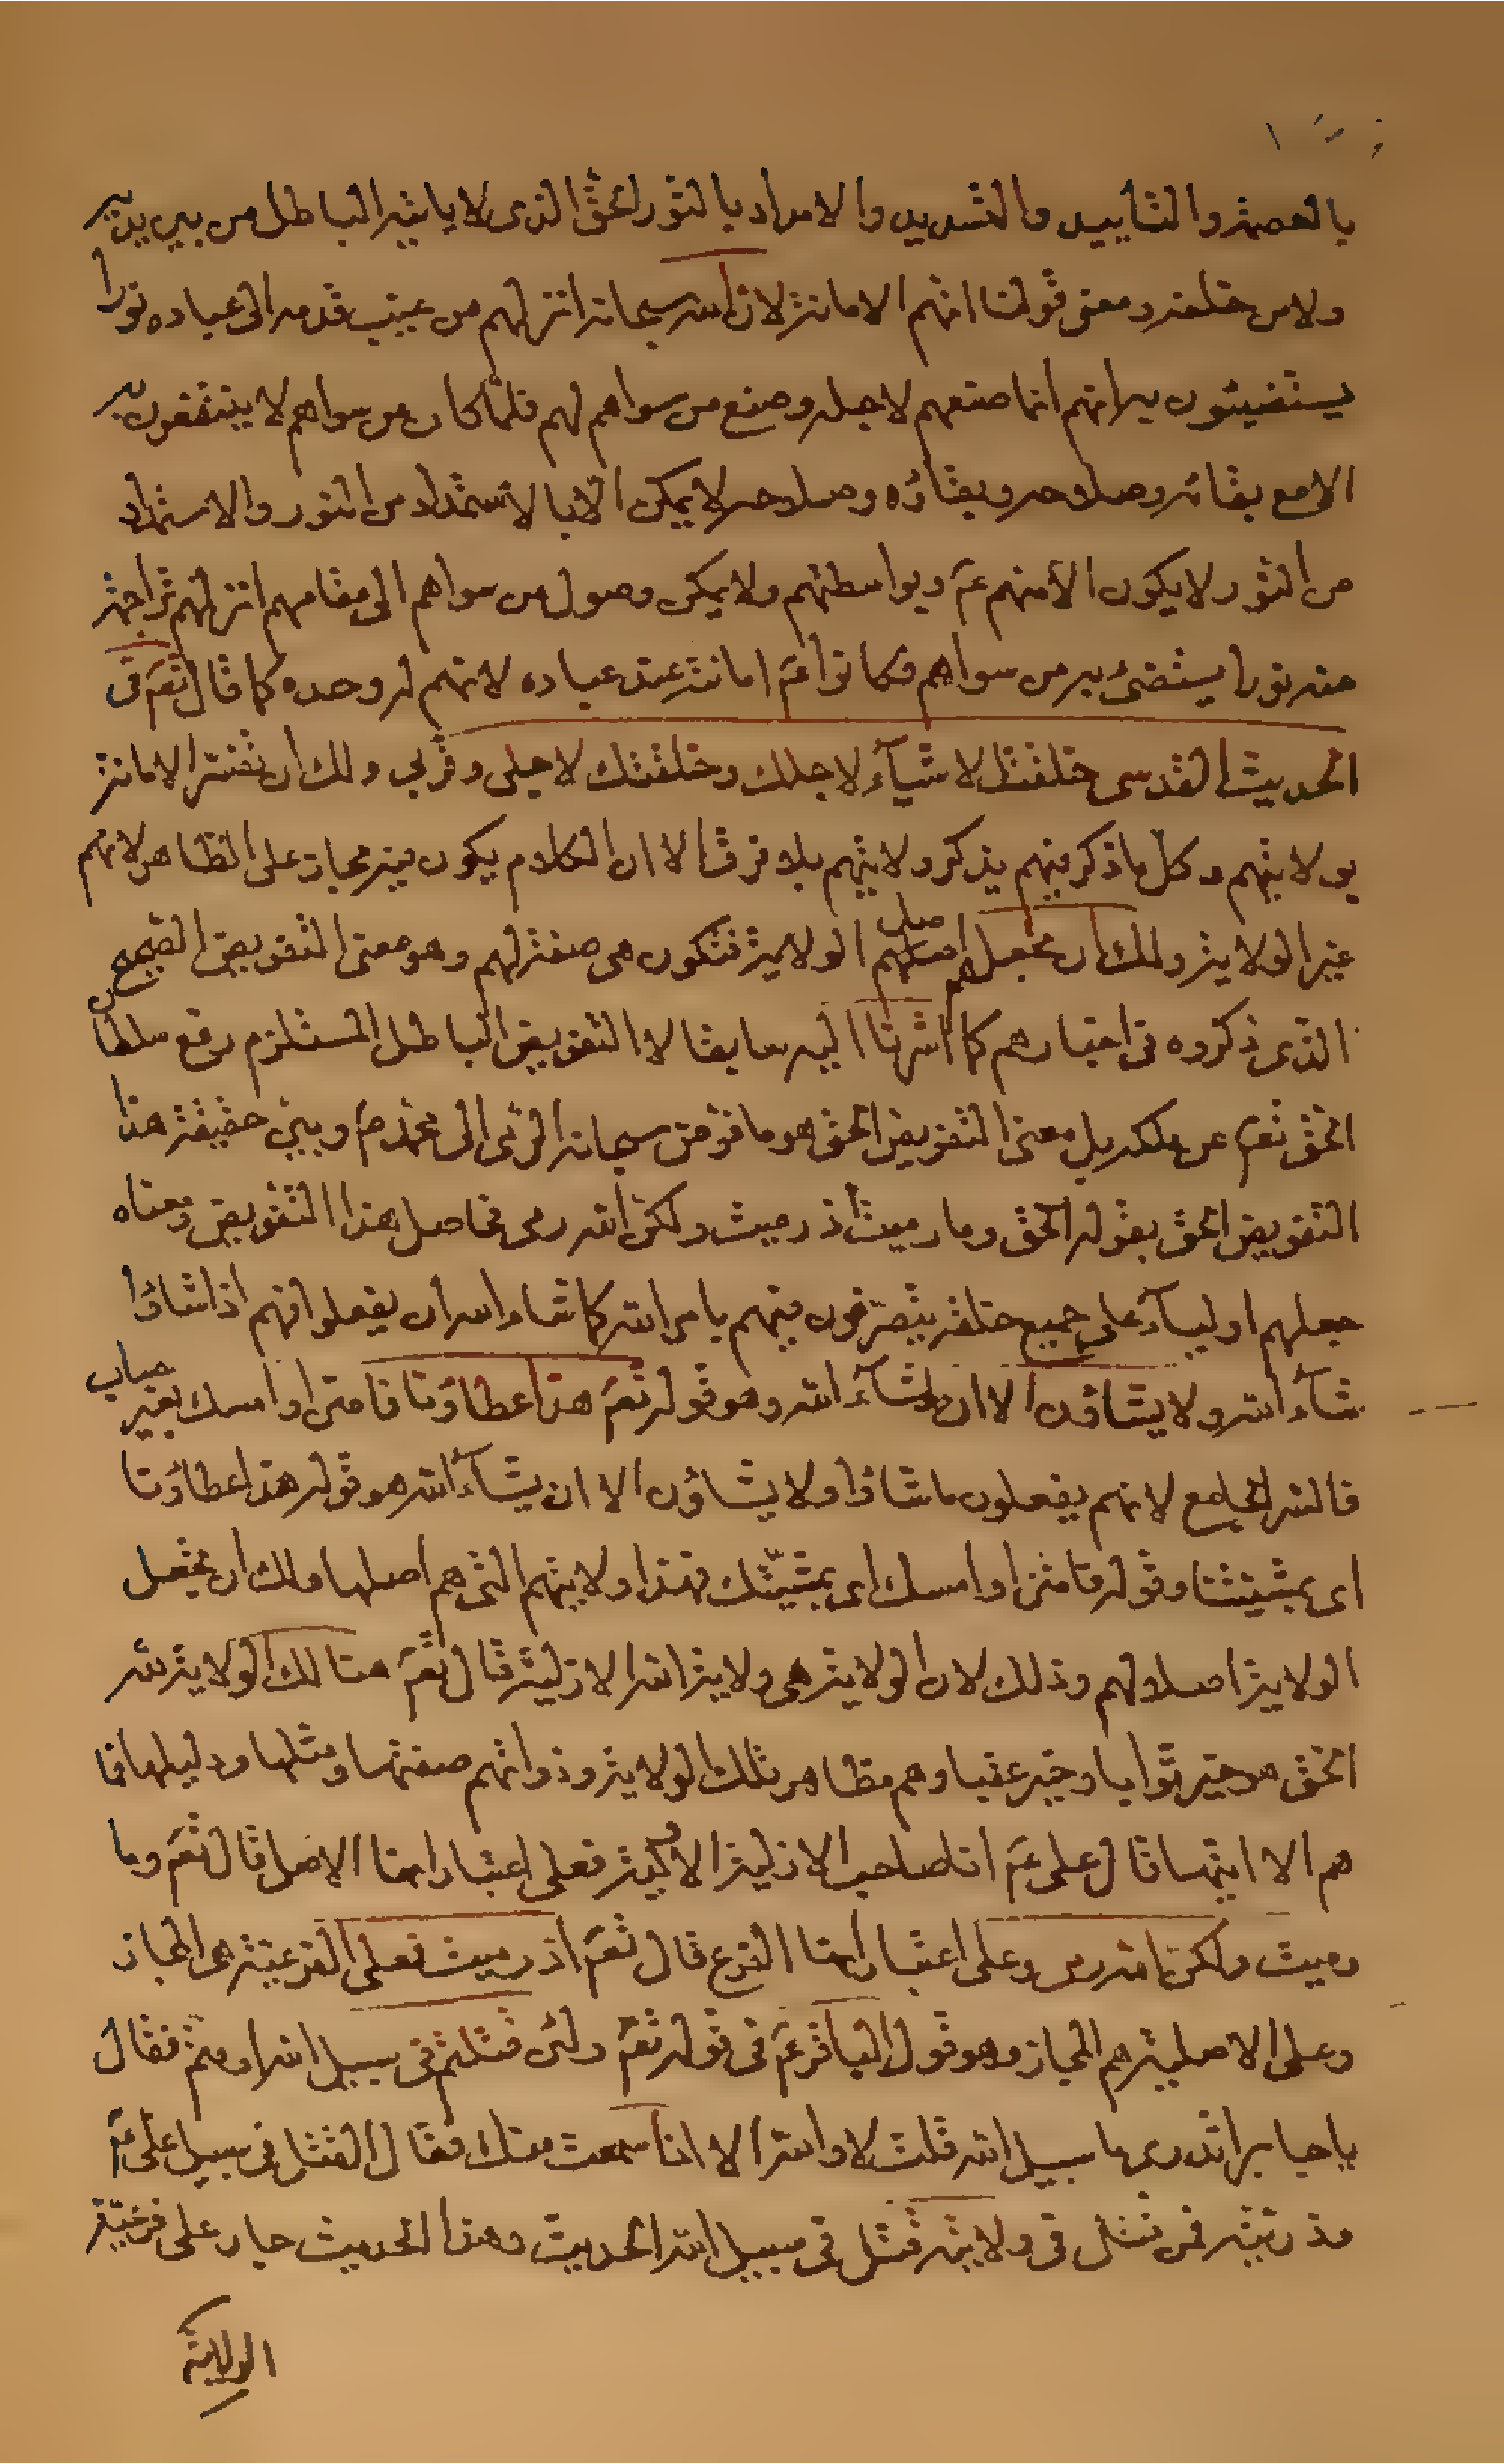 بالعصمة والتأييد والتسديد والامداد بالنور الحق الذى لا ياتيه الباطل من بين يديه
ولا من خلفه ومعنى قولنا انهم الامانة لان الله سبحانه انزلهم من غيب قدمه الى عباده نورا
يستضيئون به انهم انما صنعهم لاجله وصنع من سواهم لهم فلمّا كان من سواهم لا ينتفعون به
الا مع بقائه وصلاحه وبقاؤه وصلاحه لا يمكن الا بالاستمداد من النور والاستمداد
من النور لا يكون الا منهم عم وبواسطتهم ولا يمكن وصول من سواهم الى مقامهم انزلهم تراجمة
منه نورا يستضئ به من سواهم فكانوا عم امانته عند عباده لانهم له وحده كما قال تعم فى
الحديث القدسى خلقت الاشيآء لاجلك وخلقتك لاجلى وقربى ولك ان تفسّر الامانة
بولايتهم وكل ما ذكر فيهم يذكر ولايتهم بلا فرق الا ان الكلام يكون فيه مجاز على الظاهر لانهم
غير الولاية ولك ان تجعلهم اصل الولاية فتكون هى صفة لهم وهو معنى التفويض الصحيح
الذى ذكروه فى اخبارهم كما اشرنا اليه سابقا لا التفويض الباطل المستلزم رفع سلطان
الحق تعم عن ملكه بل معنى التفويض الحق هو ما فوض سبحانه الرمى الى محمد ص وبيّن حقيقة هذا
التفويض الحق بقوله الحق وما رميت اذ رميت ولكن الله رمى فحاصل هذا التفويض ومعناه
جعلهم اوليآء على جميع خلقه يتصرفون فيهم بامر الله كما شاء الله ان يفعلوا فهم اذا شاؤا
شآء الله ولا يشاؤن الا ان يشآء الله وهو قوله تعم هذا عطاؤنا فامنن او امسك بغير حساب
فالشر الجامع لانهم يفعلون ما شاؤا ولا يشاؤن الا ان يشآء الله هو قوله هذا عطاؤنا
اى بمشيتنا وقوله فامنن او امسك اى بمشيّتك فهذا ولايتهم التى هم اصلها ولك ان تجعل
الولاية اصلا لهم وذلك لان الولاية هى ولاية الله الازلية قال تعم هنالك الولاية لله
الحق هو خير ثوابا وخير عقبا وهم مظاهر تلك الولاية وذواتهم صفتها ومثلها ودليلها فما
هم الا ايتها قال على عم انا صاحب الازلية الاولية فعلى اعتبار انها الاصل قال تعم وما
رميت ولكن الله رمى وعلى اعتبار انها الفرع قال تعم اذ رميت فعلى الفرعية هى المجاز
وعلى الاصلية هم المجاز وهو قول الباقر عم فى قوله تعم ولئن قتلتم فى سبيل الله او متم فقال
يا جابر اتدرى ما سبيل الله قلت لا والله الا اذا سمعت منك فقال القتل فى سبيل على عم
وذريته فمن قتل فى ولايته قتل فى سبيل الله الحديث وهذا الحديث جار على فرعية
الولاية